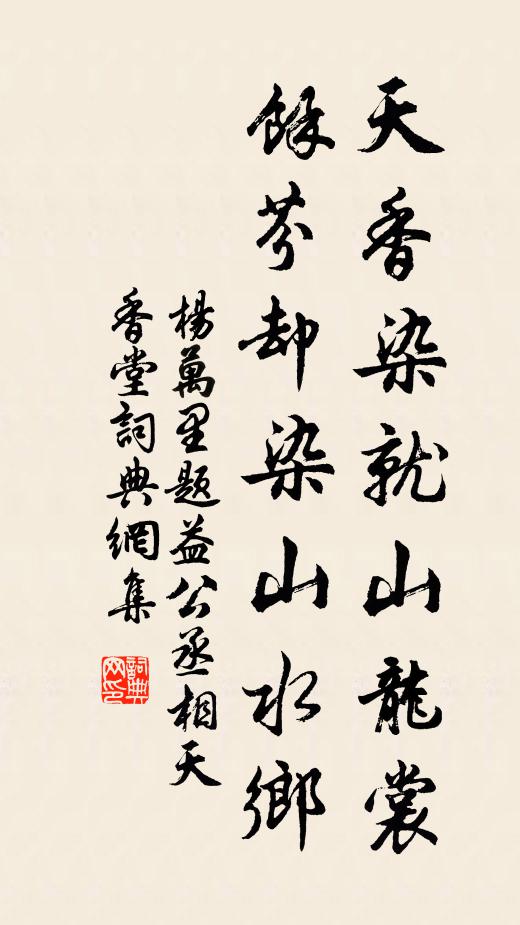 天香染就山龍裳
餘芬却染山水鄉
楊萬里題益公丞相天
香堂詞典網集
詞典網印